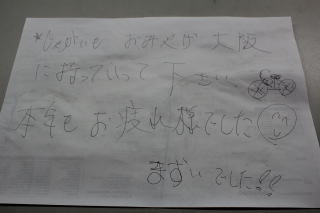 おみやげ 大阪
に持っていって下さい
本年もお疲れ様でした
まずいでした!!